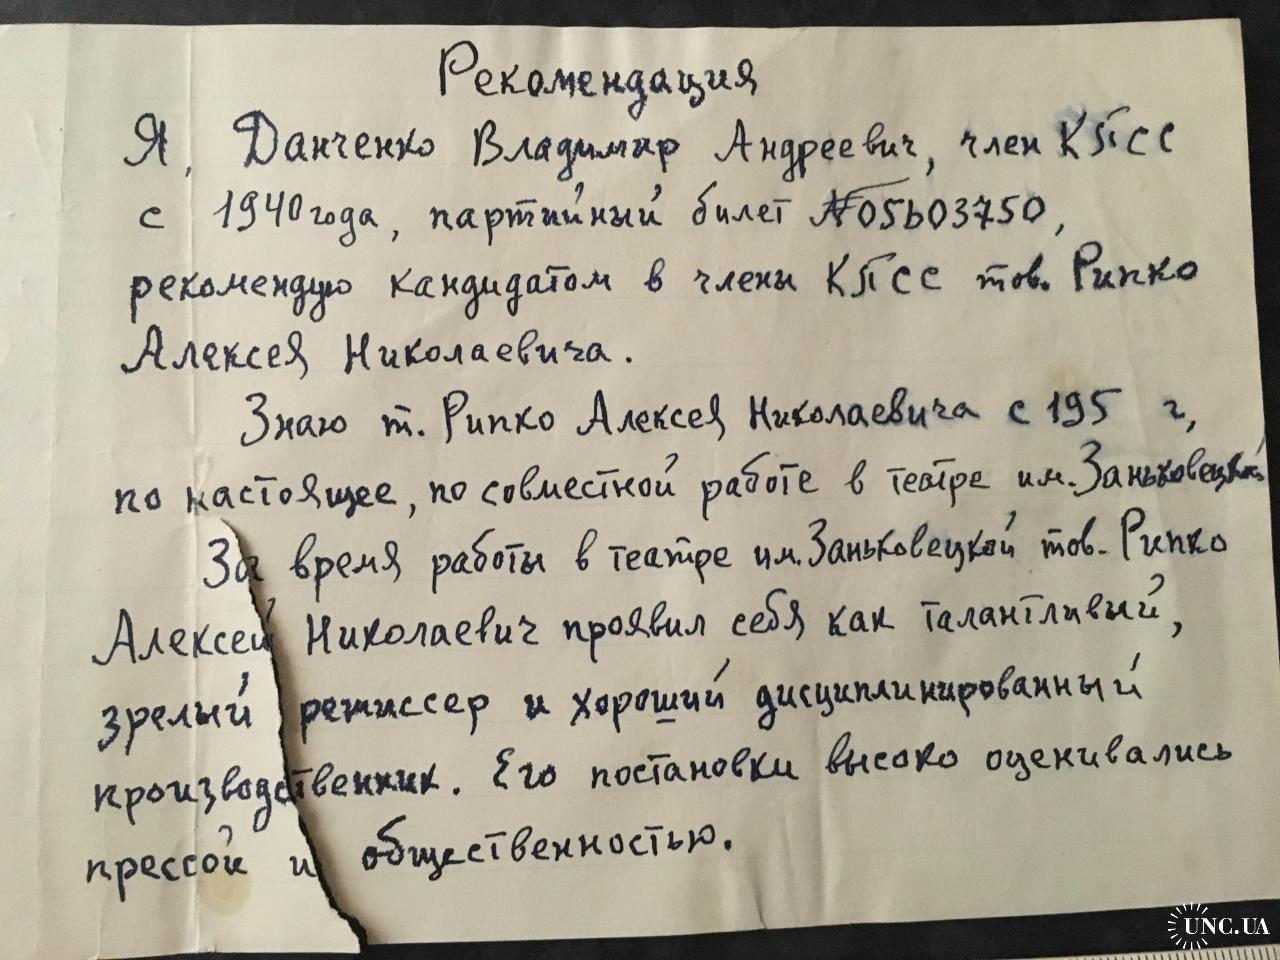 Рекомендация
Я, Данченко Владимир Андреевич, член КПСС
с 1940 года, партийный билет №05603750,
рекомендую кандидатом в члены КПСС тов. Рипко
Алексея Николаевича.
Знаю т. Рипко Алексея Николаевича с 195 г,
по настоящее, по совместной работе в театре им. Заньковецкой
За время работы в театре им. Заньковецкой тов. Рипко
Алексей Николаевич проявил себя как талантливый,
зрелый режиссер и хороший дисциплинированный
производственник. Его постановки высоко оценивались
прессой и общественностью.
UNC.UA